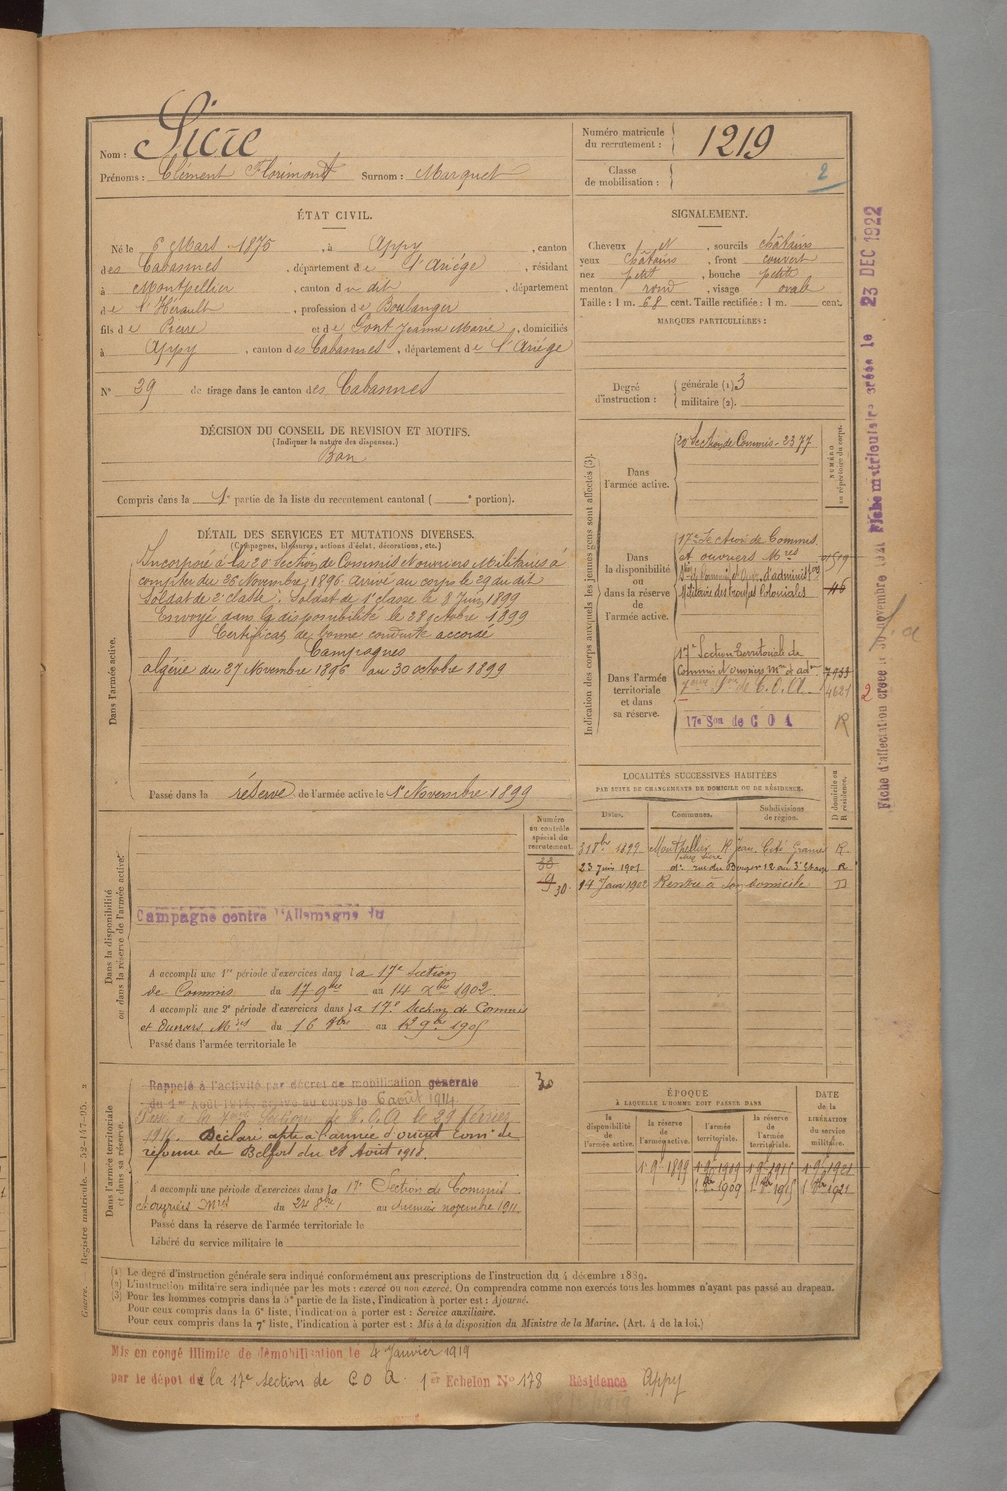 Nom : Sicre
Prénoms : Clément Florimont Surnom : Marquet
Numéro matricule du recrutement : 1219
Classe de mobilisation : 2
ÉTAT CIVIL.
Né le 6 Mars 1875, à Appy, canton
des Cabannes, département de l'Ariége, résidant
à Montpellier, canton du dit, département
de l'Hérault, profession de Boulanger
fils de et de Jeanne Marie, domiciliés
à Appy, canton des Cabannes, département de l'Ariége
N° 39 de tirage dans le canton des Cabannes
DÉCISION DU CONSEIL DE REVISION ET MOTIFS.
(Indiquer la nature des dispenses.)
Bon
Compris dans la 1e partie de la liste du recrutement cantonal ( e portion).
SIGNALEMENT.
Cheveux et, sourcils châtains
yeux châtains, front couvert
nez petit, bouche petite
menton rond, visage ovale
Taille : 1 m. 68 cent. Taille rectifiée : 1 m. cent.
MARQUES PARTICULIÈRES :
Degré d'instruction : générale (1) 3
militaire (2).
DÉTAIL DES SERVICES ET MUTATIONS DIVERSES.
(Campagnes, blessures, actions d'éclat, décorations, etc.)
Dans l'armée active.
Incorporé à la 20e Section de Commis N ouvriers Militaires à
compter du 26 Novembre 1896 arrivé au corps le 29 du dit
Soldat de 2e classe. Soldat de 1e classe le 8 Juin 1899
Envoyé dans la disponibilité le 28 octobre 1899
Certificat de bonne conduite accordé
Campagnes
algérie du 27 Novembre 1896 au 30 octobre 1899
Passé dans la réserve de l'armée active le 1er Novembre 1899
Indication des corps auxquels les jeunes gens sont affectés (3).
NUMÉRO au répertoire du corps.
Dans l'armée active.
20e Section de Commis - 2377
Dans la disponibilité ou dans la réserve de l'armée active.
17e Section de Commis
et ouvriers Mres 1519
d'adminis
Militaire des troupes Coloniales 46
Dans l'armée territoriale et dans sa réserve.
17e Section Territoriale de
Commis N ouvriers mres et adon 7933
de C.O.A. 4621
17e Son de C O A R
LOCALITÉS SUCCESSIVES HABITÉES
PAR SUITE DE CHANGEMENTS DE DOMICILE OU DE RÉSIDENCE.
Dates. Communes. Subdivisions de région. D domicile ou R résidence.
31 8bre 1899 Montpellier R.
23 Juin 1901 do rue du Berger 12 au 3e étage R
14 Janv 1902 Rentré à son domicile D
Numéro au contrôle spécial du recrutement.
30
Dans la disponibilité ou dans la réserve de l'armée active.
Campagne contre l'Allemagne du
A accompli une 1re période d'exercices dans la 17e Section
de Commis du 17 9bre au 14 Xbre 1902
A accompli une 2e période d'exercices dans la 17e Section de Commis
et Ouvriers Mres du 16 8bre au 12 9bre 1905
Passé dans l'armée territoriale le
Dans l'armée territoriale et dans sa réserve.
Rappelé à l'activité par décret de mobilisation générale
du 1er Août 1914, arrivé au corps le 6 août 1914
Passé à la Section de C.O.A le 29 février
1916. Déclaré apte à l'armée d'orient Comon de
réforme de Belfort du 28 Août 1918.
30
A accompli une période d'exercices dans la 17e Section de Commis
et ouvriers Mres du 24 8bre au premier novembre 1911
Passé dans la réserve de l'armée territoriale le
Libéré du service militaire le
ÉPOQUE
À LAQUELLE L'HOMME DOIT PASSER DANS
la disponibilité de l'armée active. la réserve de l'armée active. l'armée territoriale. la réserve de l'armée territoriale. DATE de la LIBÉRATION du service militaire.
1 9e 1899 1 9e 1909 1 9e 1915 1 9e 1921
1 8bre 1909 1 8bre 1915 1 8bre 1921
(1) Le degré d'instruction générale sera indiqué conformément aux prescriptions de l'instruction du 4 décembre 1889.
(2) L'instruction militaire sera indiquée par les mots : exercé ou non exercé. On comprendra comme non exercés tous les hommes n'ayant pas passé au drapeau.
(3) Pour les hommes compris dans la 5e partie de la liste, l'indication à porter est : Ajourné.
Pour ceux compris dans la 6e liste, l'indication à porter est : Service auxiliaire.
Pour ceux compris dans la 7e liste, l'indication à porter est : Mis à la disposition du Ministre de la Marine. (Art. 4 de la loi.)
Mis en congé illimité de démobilisation le 4 Janvier 1919
par le dépot de la 17e Section de C O A 1er Echelon N° 178 Résidence Appy
Guerre. — Registre matricule. — 52-147-95.
Fiche d'affectation créée le 30 novembre Fiche matriculaire créée le 23 DEC 1922